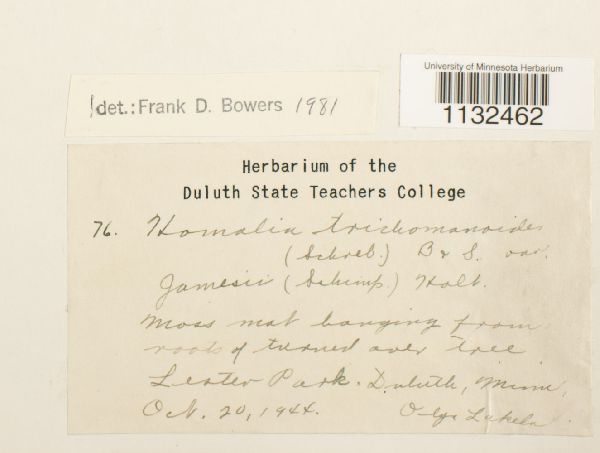 University of Minnesota Herbarium
1132462
!det.: Frank D. Bowers 1981
Herbarium of the
Duluth State Teachers College
76. Homalia trichomanoides
(Schreb.) B & S. var.
Jamesii (Schimp.) Holt.
Moss mat hanging from
roots of turned over tree
Lester Park. Duluth, Minn.
Oct. 20, 1944. Olga Lakela